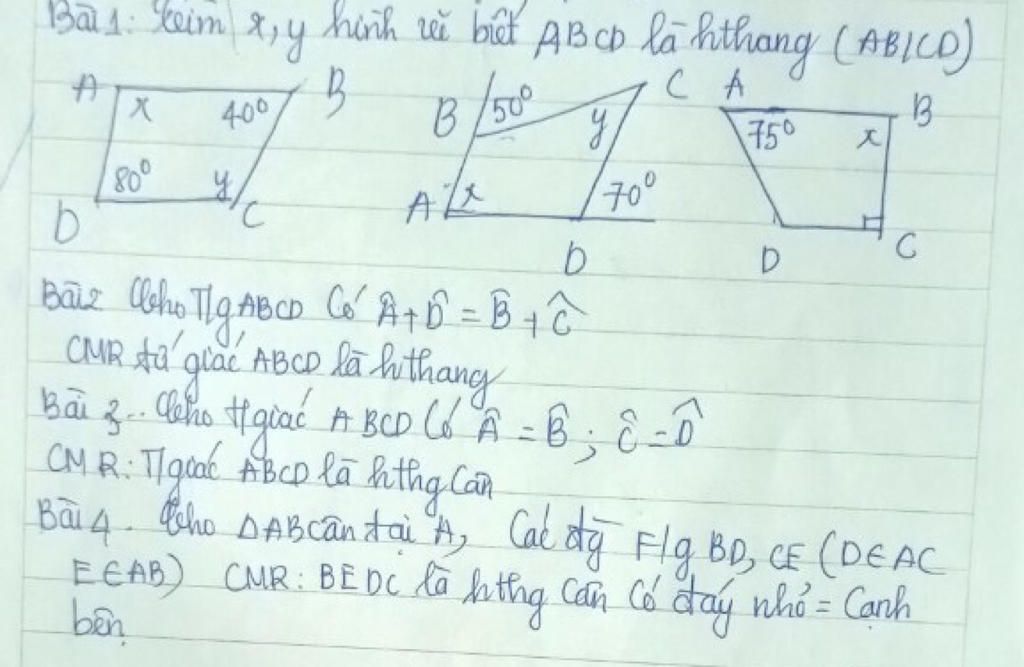 Bài 1: Tìm x, y hình vẽ biết ABCD là hthang (AB//CD)
A B C A B
x 40° B 50° y 75° x
80° y A x 70°
D C D D C
Bài 2 Cho T/g ABCD Có Â + D̂ = B̂ + Ĉ
CMR tứ giác ABCD là hthang
Bài 3.. Cho t/giác ABCD Có Â = B̂ ; Ĉ = D̂
CMR: T/giác ABCD là hthg Cân
Bài 4. Cho ΔABC cân tại A, Các đg F/g BD, CE (D∈AC
E∈AB) CMR: BEDC là hthg Cân Có đáy nhỏ = Cạnh
bên.